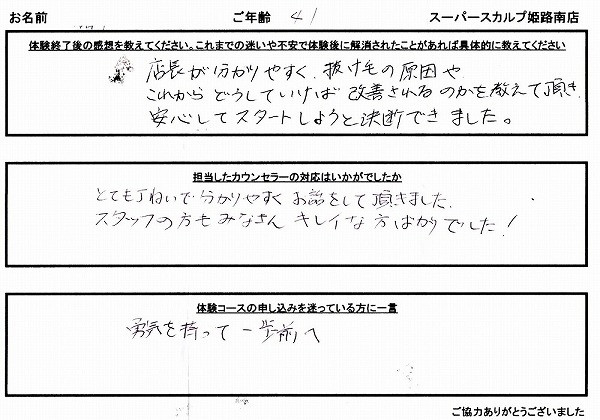 お名前 ご年齢 41 スーパースカルプ姫路南店
体験終了後の感想を教えてください。これまでの迷いや不安で体験後に解消されたことがあれば具体的に教えてください
店長が分かりやすく、抜け毛の原因や
これから どうしていけば 改善されるのかを教えて頂き、
安心してスタートしようと決断できました。
担当したカウンセラーの対応はいかがでしたか
とても丁ねいで分かりやすく お話をして頂きました。
スタッフの方もみなさん キレイな方ばかりでした!
体験コースの申し込みを迷っている方に一言
勇気を持って 一歩前へ
ご協力ありがとうございました